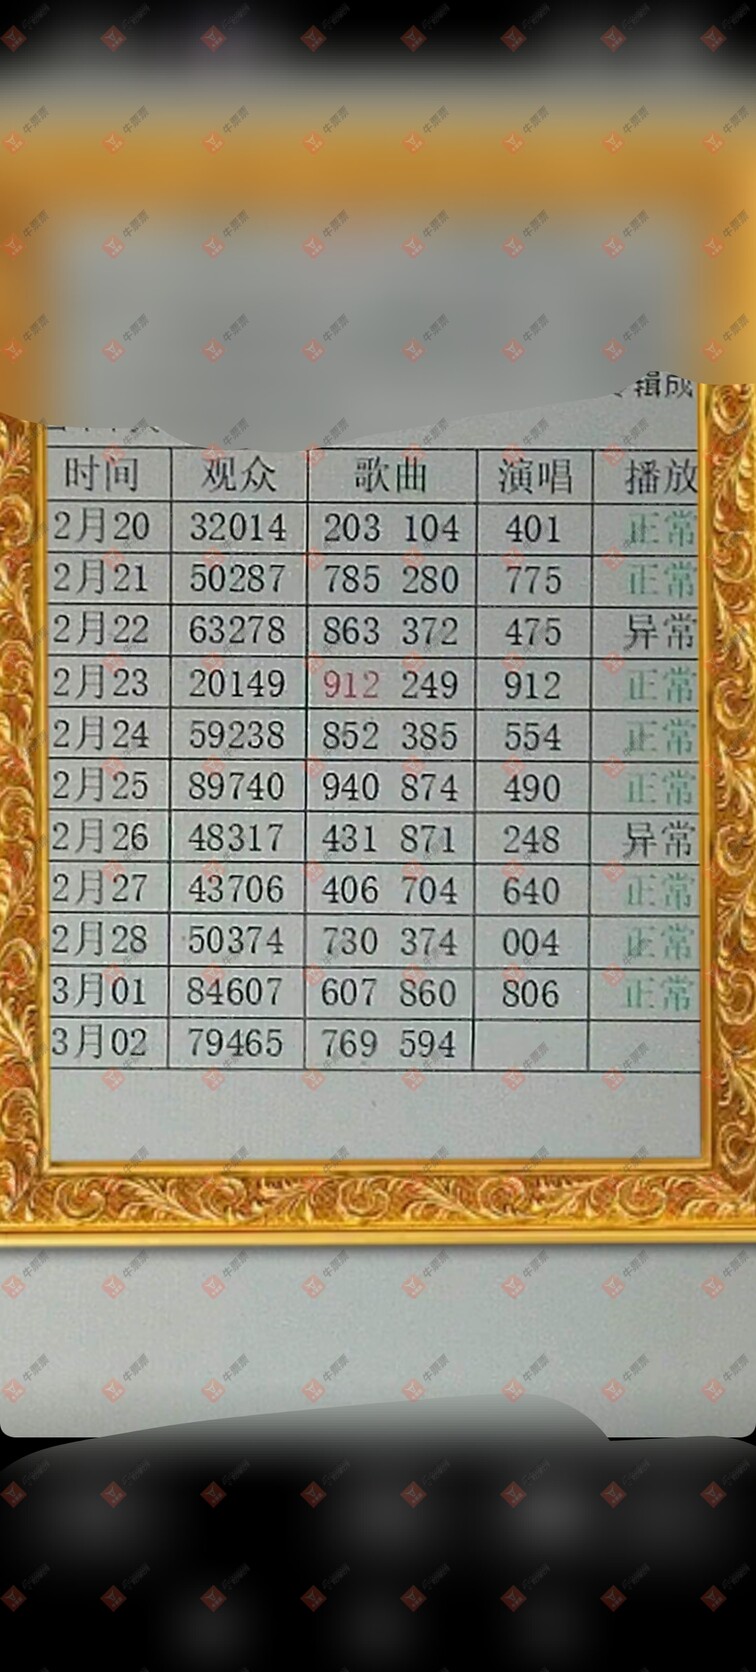 辑成
时间 观众 歌曲 演唱 播放
2月20 32014 203 104 401 正常
2月21 50287 785 280 775 正常
2月22 63278 863 372 475 异常
2月23 20149 912 249 912 正常
2月24 59238 852 385 554 正常
2月25 89740 940 874 490 正常
2月26 48317 431 871 248 异常
2月27 43706 406 704 640 正常
2月28 50374 730 374 004 正常
3月01 84607 607 860 806 正常
3月02 79465 769 594